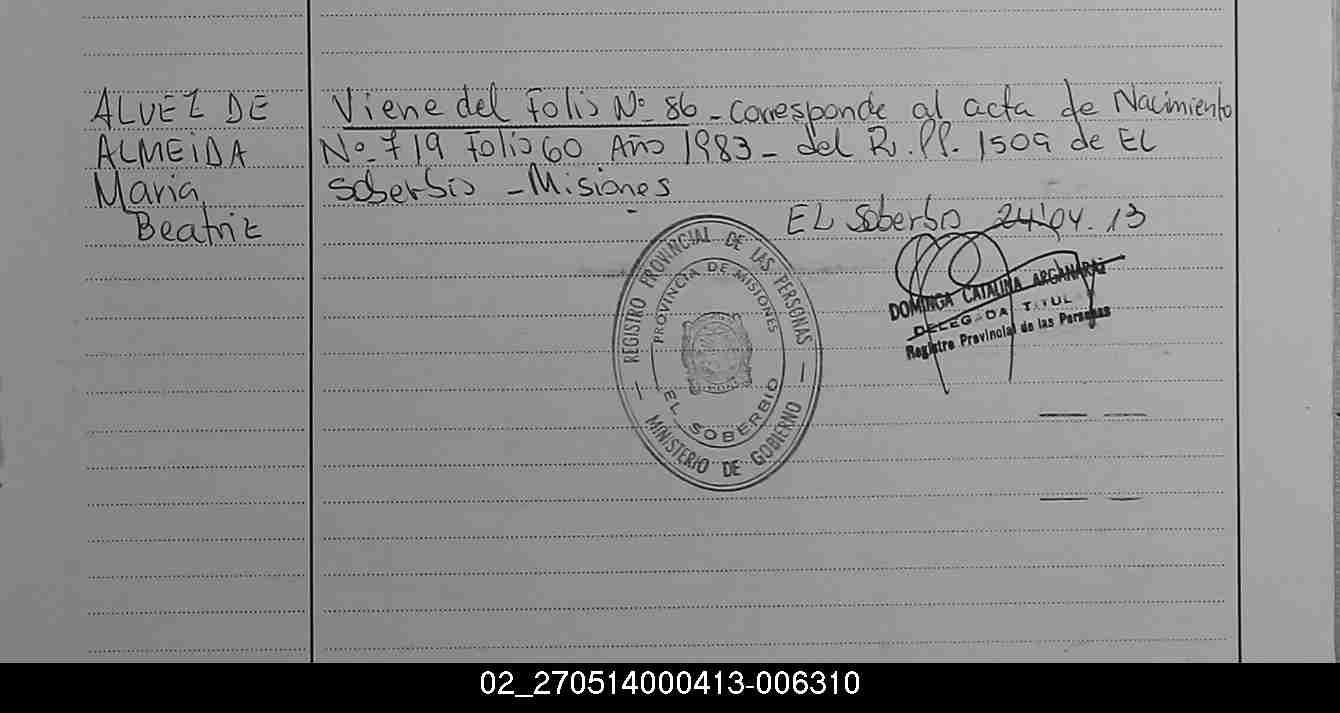 ALVEZ DE
ALMEIDA
Maria
Beatriz
Viene del Folio Nº 86 - Corresponde al acta de Nacimiento
Nº 719 Folio 60 Año 1983 - del R. PP. 1509 de EL
Soberbio - Misiones
EL Soberbio 24'04.13
REGISTRO PROVINCIAL DE LAS PERSONAS
PROVINCIA DE MISIONES
EL SOBERBIO
MINISTERIO DE GOBIERNO
DOMINGA CATALINA ARGAÑARAZ
DELEGADA TITUL
Registro Provincial de las Personas
02_270514000413-006310